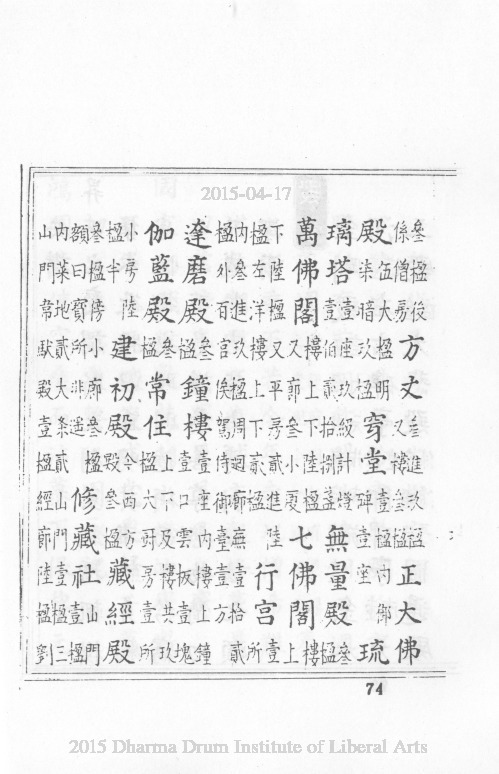 叁楹後係僧房方丈叁進玖楹又樓叁楹正大佛
殿伍大楹明柒暗玖楹穿堂壹楹內御碑壹座琉
璃塔壹座玖級計燈壹伯貳拾捌盞無量殿叁楹
萬佛閣壹樓上下陸楹又廊叁小廈楹七佛閣樓上
下陸楹又平房貳進陸楹左洋樓上下貳楹行宮壹所
楹內外叁進百玖楹周週廊廡壹拾貳
達磨殿叁楹鐘樓壹座內樓上鐘壹口雲板壹塊
伽藍殿叁楹常住上下及樓共玖楹大廚房壹所
小房陸楹半建初殿今西方殿叁楹藏經殿
叁楹傍小廊叁楹額曰寶所非遥修藏社山門壹楹
內菜地貳大条貳山門壹楹三山門常獃殿壹楹經廊陸楹劉
74
2015-04-17
2015 Dharma Drum Institute of Liberal Arts